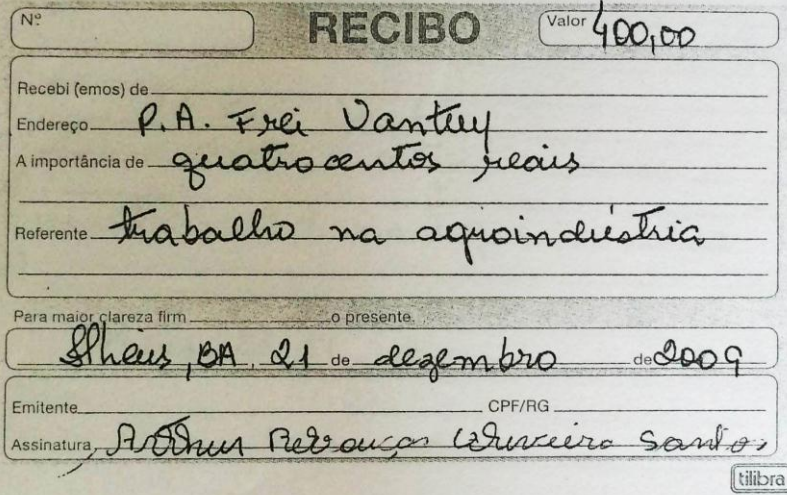 Nº
RECIBO
Valor 400,00
Recebi (emos) de
Endereço P.A. Frei Vantuy
A importância de quatrocentos reais
Referente trabalho na agroindústria
Para maior clareza firm o presente.
Ilhéus, BA, 21 de dezembro de 2009
Emitente CPF/RG
Assinatura Arthur Santos
tilibra